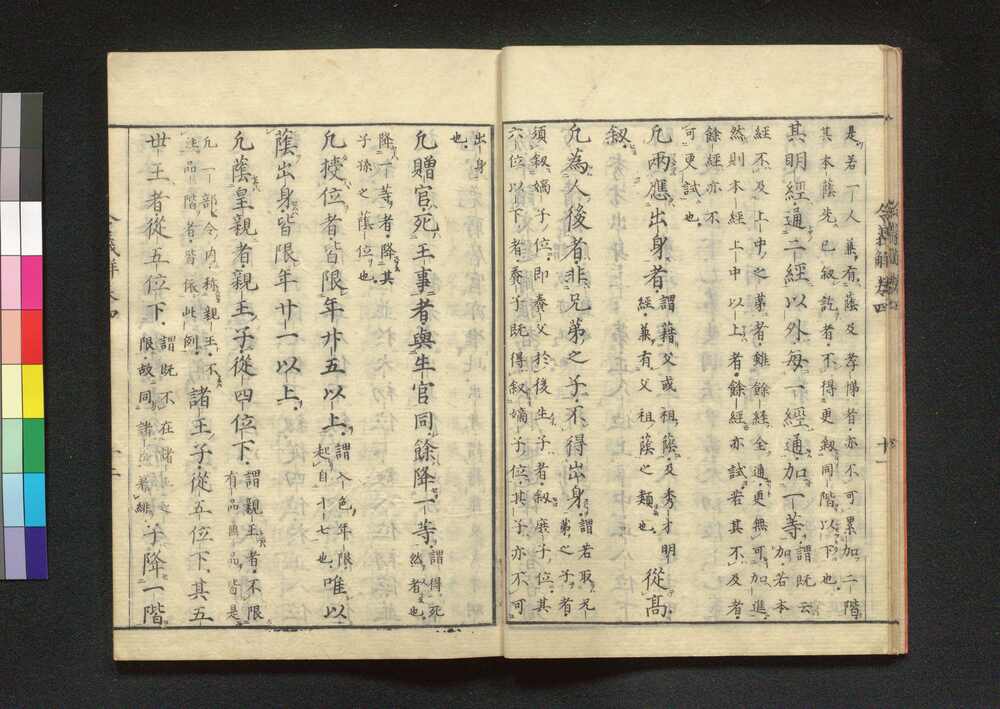 是若一人兼有蔭及孝悌者亦不可累加二階
其本蔭先已叙訖者不得更叙同階以下也
其明經通二經以外每一經通加一等謂既云加若本
經不及上中之第者雖餘經全通更無可加進
然則本經上中以上者餘經亦試若其不及者
餘經亦不
可更試也
凡兩應出身者謂藉父或祖蔭及秀才明經兼有父祖蔭之類也從高
叙
凡為人後者非兄弟之子不得出身謂若取兄弟之子者
須叙嫡子位即養父於後生子者叙庶子位其
六位以下者養子既得叙嫡子位其子亦不可
出身
也
凡贈官死王事者與生官同餘降一等謂得死然者也
降一等者降其
子孫之蔭位也
凡授位者皆限年廿五以上謂今色年限起自十七也唯以
蔭出身皆限年廿一以上
凡蔭皇親者親王子從四位下謂親王者不限有品無品皆是
凡一部令内称親王不
注品階者皆依此例諸王子從五位下其五
世王者從五位下謂既不在諸王之限故同諸子降一階
令義解卷四
十一